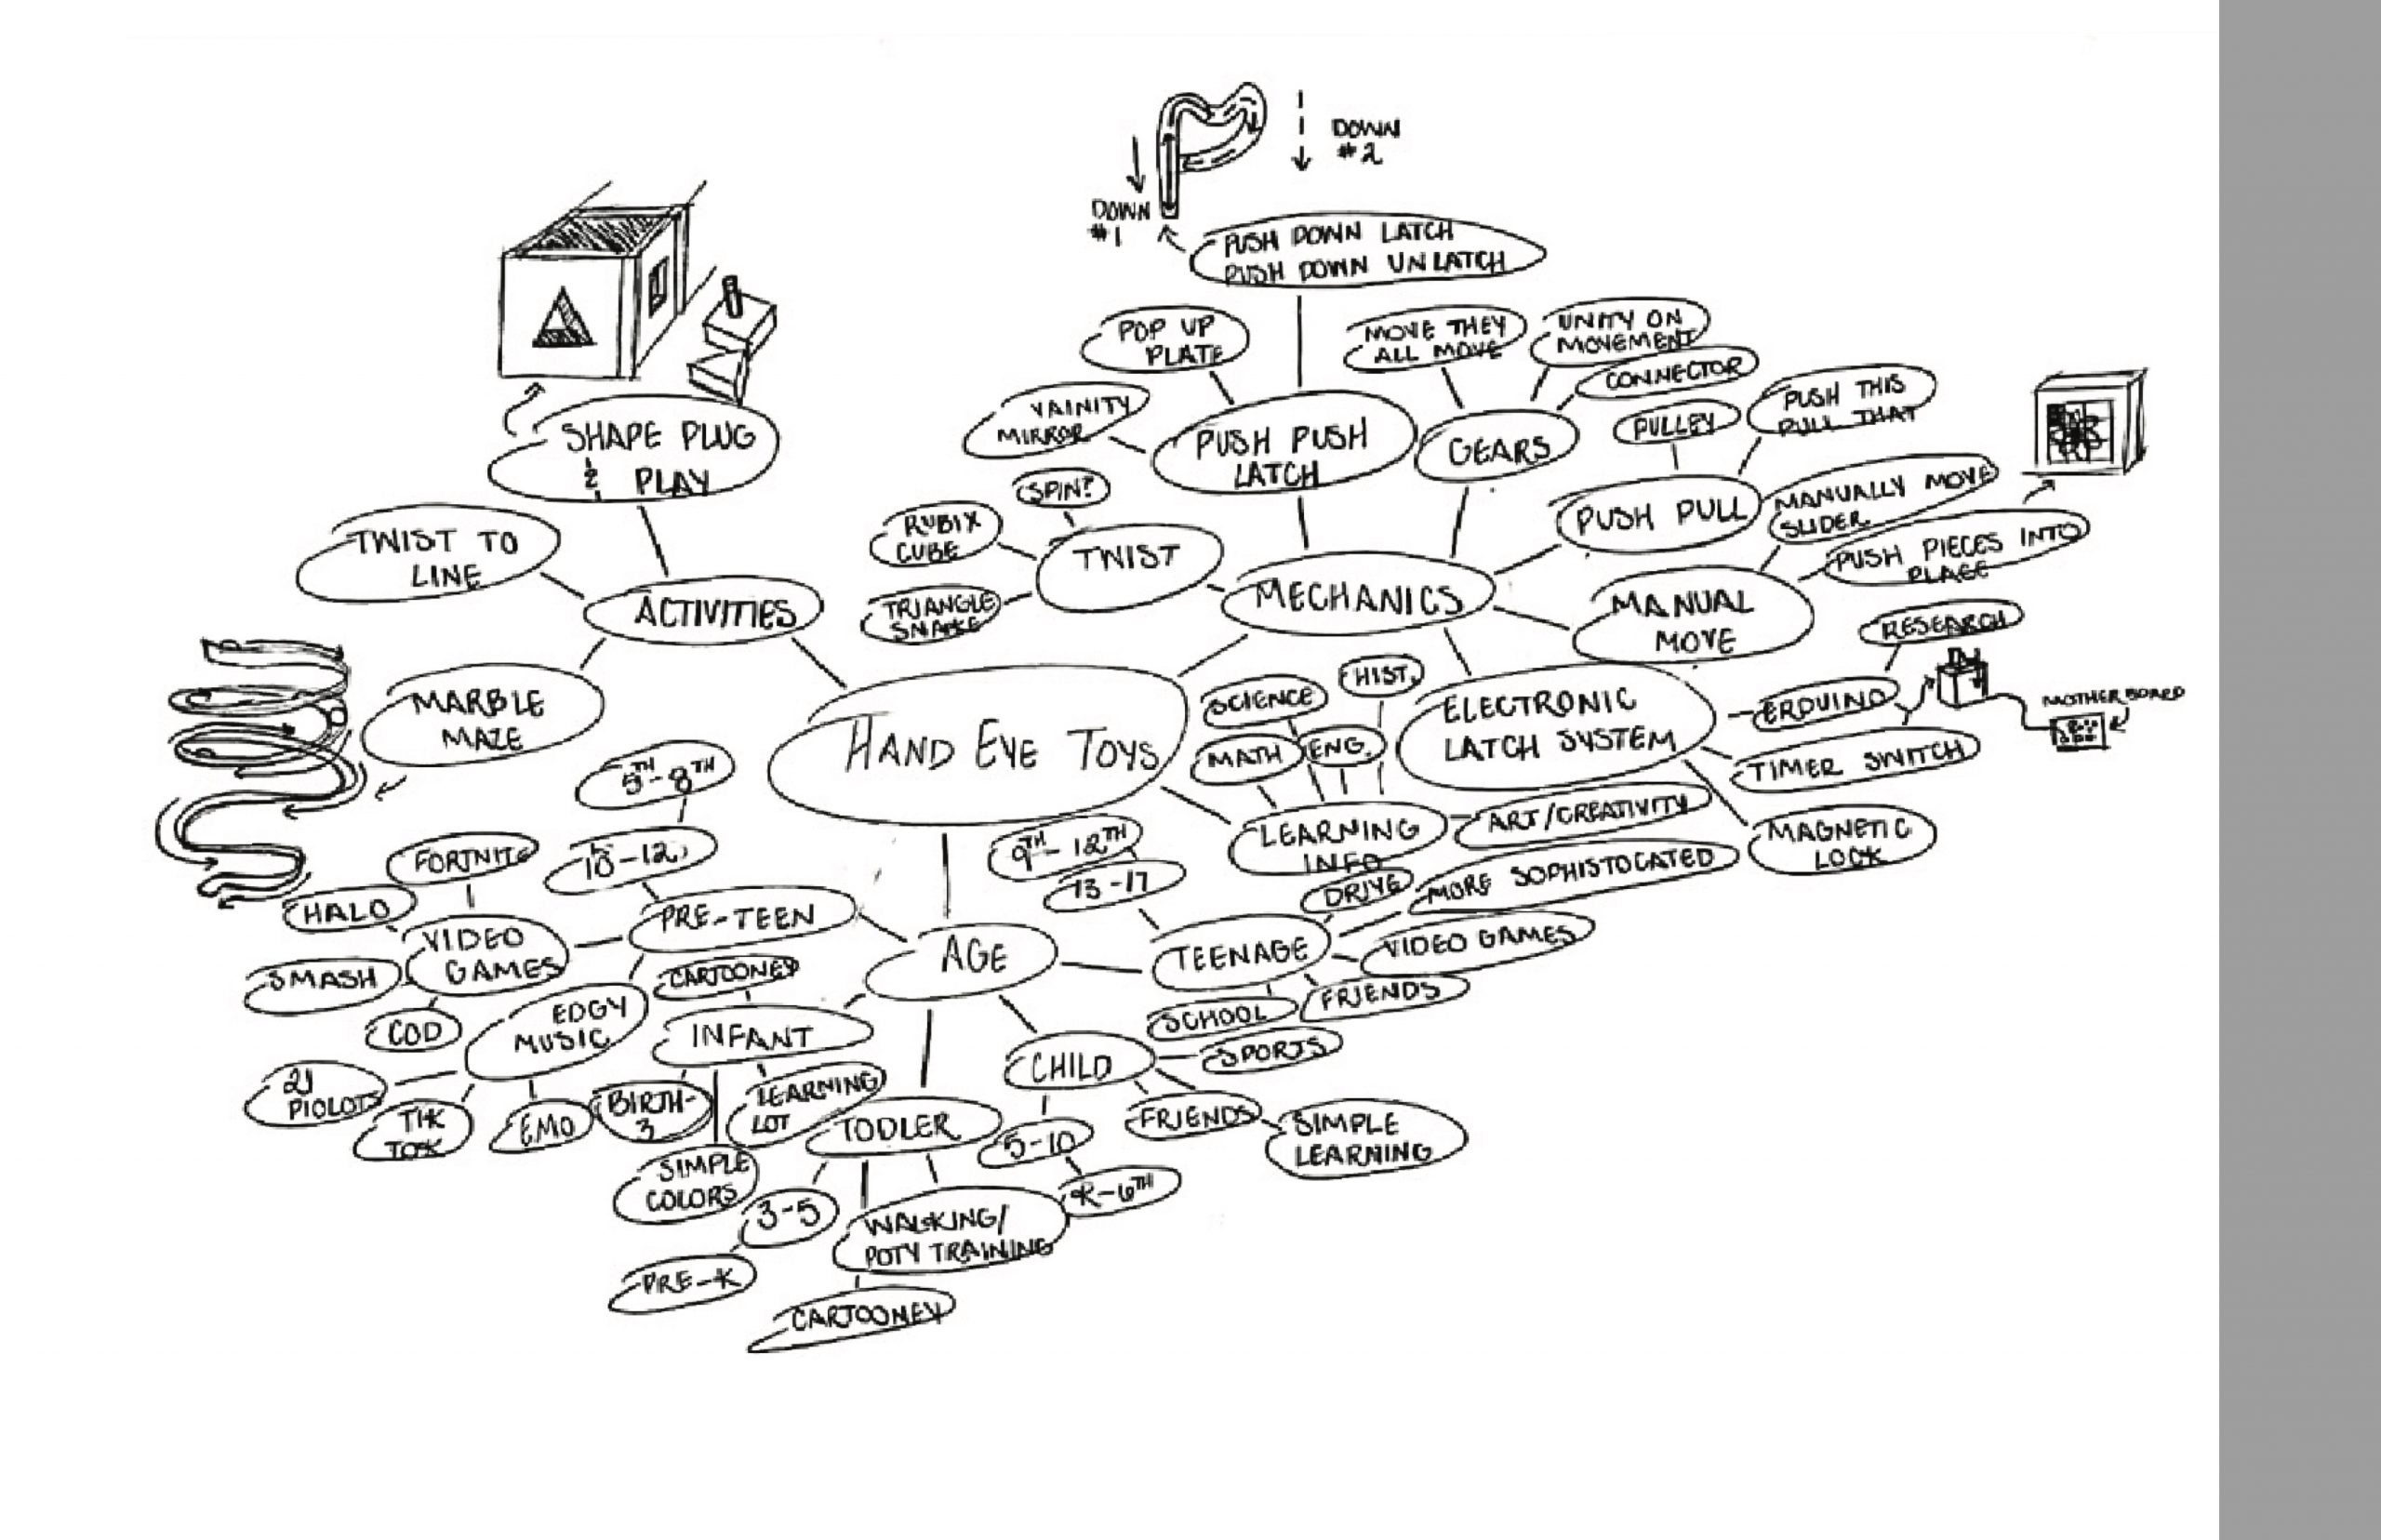 DOWN
#2
DOWN
#1
PUSH DOWN LATCH
PUSH DOWN UNLATCH
POP UP
PLATE
MOVE THEY
ALL MOVE
UNITY ON
MOVEMENT
CONNECTOR
VAINITY
MIRROR
PUSH PUSH
LATCH
GEARS
PULLEY
PUSH THIS
PULL THAT
SHAPE PLUG
&
PLAY
SPIN?
RUBIX
CUBE
TWIST
TRIANGLE
SNAKE
PUSH PULL
MANUALLY MOVE
SLIDER
PUSH PIECES INTO
PLACE
TWIST TO
LINE
ACTIVITIES
MECHANICS
MANUAL
MOVE
RESEARCH
MARBLE
MAZE
HAND EYE TOYS
SCIENCE
HIST.
MATH
ENG.
ELECTRONIC
LATCH SYSTEM
ERDUINO
MOTHERBOARD
TIMER SWITCH
MAGNETIC
LOCK
LEARNING
INFO
ART/CREATIVITY
5TH-8TH
10-12
9TH-12TH
13-17
DRIVE
MORE SOPHISTOCATED
FORTNITE
HALO
VIDEO
GAMES
SMASH
COD
PRE-TEEN
AGE
TEENAGE
VIDEO GAMES
SCHOOL
FRIENDS
EDGY
MUSIC
CARTOONEY
INFANT
CHILD
SPORTS
21
PIOLOTS
TIK
TOK
EMO
BIRTH-
3
LEARNING
LOT
TODLER
5-10
FRIENDS
SIMPLE
LEARNING
SIMPLE
COLORS
3-5
WALKING/
POTY TRAINING
K-6TH
PRE-K
CARTOONEY